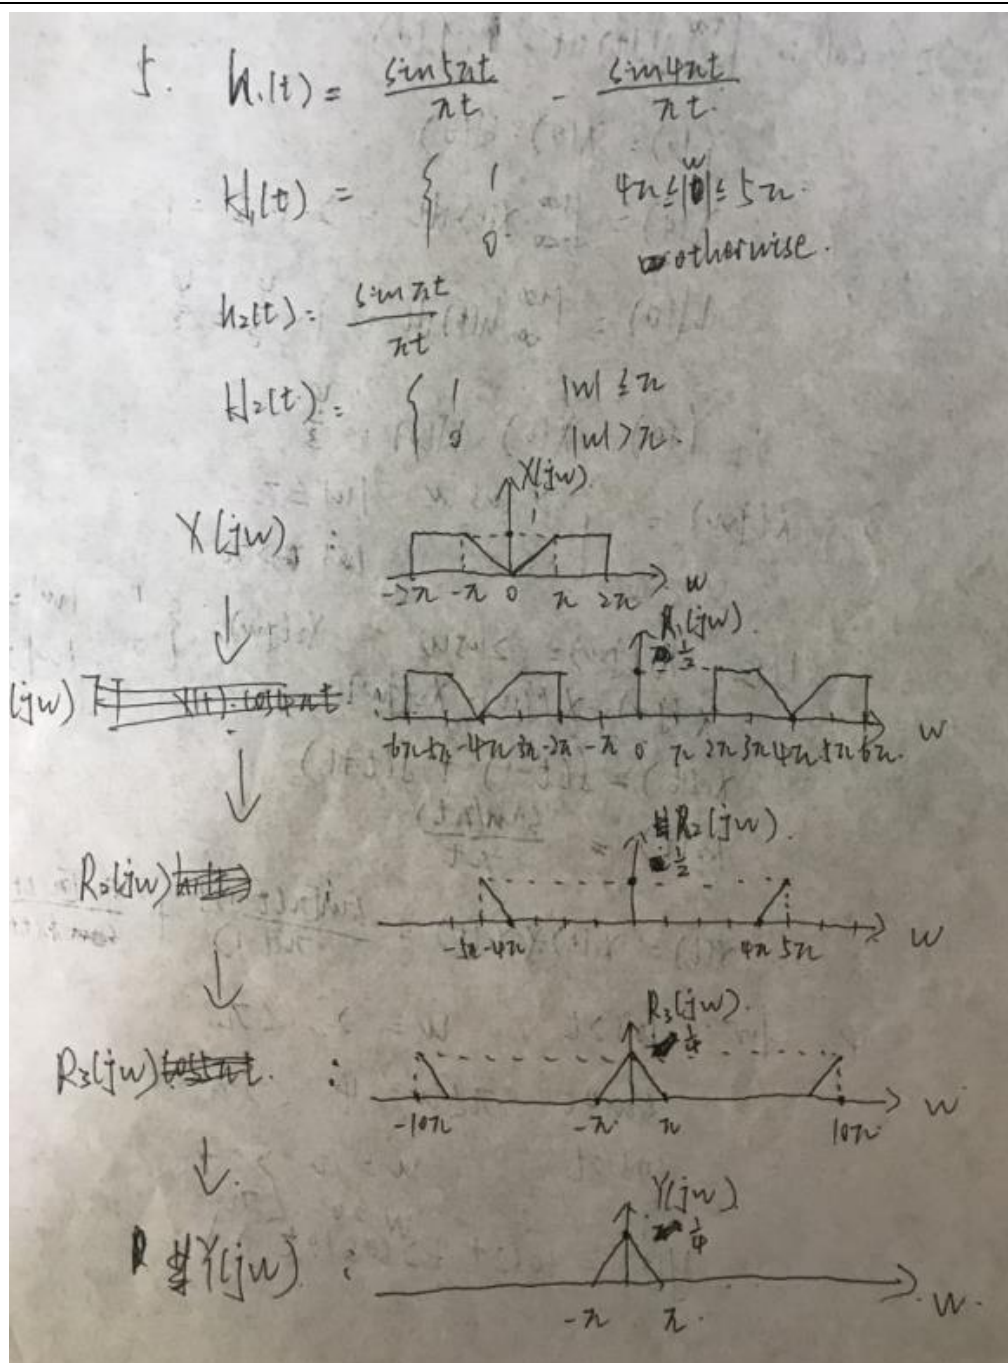 5. h₁(t) = sin5πt/πt - sin4πt/πt.
H₁(t) = { 1 4π≤|w|≤5π.
0 otherwise.
h₂(t) = sinπt/πt
H₂(t) = { 1 |w| ≤ π
0 |w| > π.
X(jw)
X(jw) :
1
-2π -π 0 π 2π w
R₁(jw).
1/2
(jw) X(t)·cos4πt :
-6π -5π -4π -3π -2π -π 0 π 2π 3π 4π 5π 6π. w
R₂(jw).
1/2
R₂(jw)
-5π -4π 4π 5π w
R₃(jw).
1/4
R₃(jw) cos5πt. :
-10π -π π 10π w
Y(jw)
1/4
Y(jw) :
-π π. w.